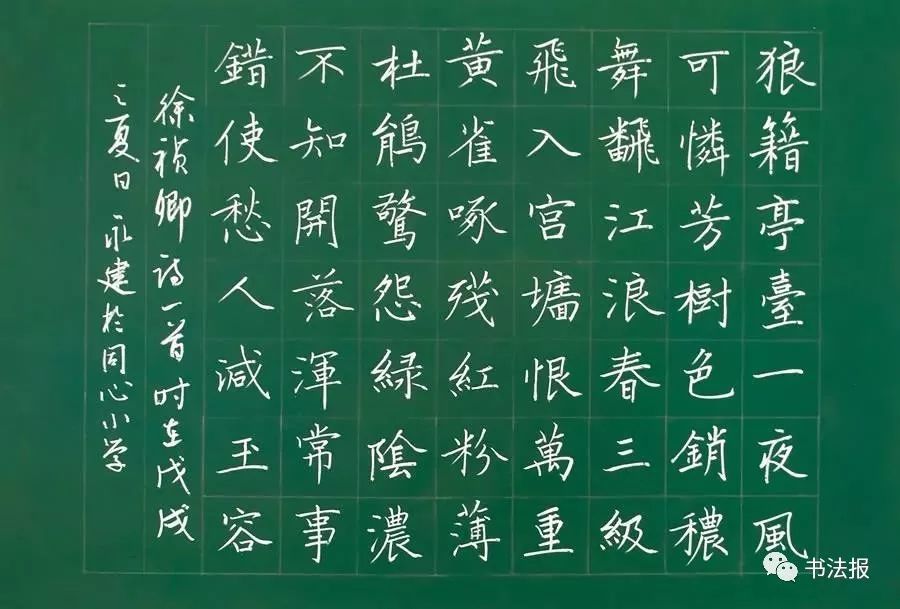 狼籍亭臺一夜風
可憐芳樹色銷穠
舞飜江浪春三級
飛入宮墻恨萬重
黃雀啄殘紅粉薄
杜鵑驚怨緑陰濃
不知開落渾常事
錯使愁人減玉容
徐禎卿詩一首时在戊戌
之夏日永建於同心小学
书法报